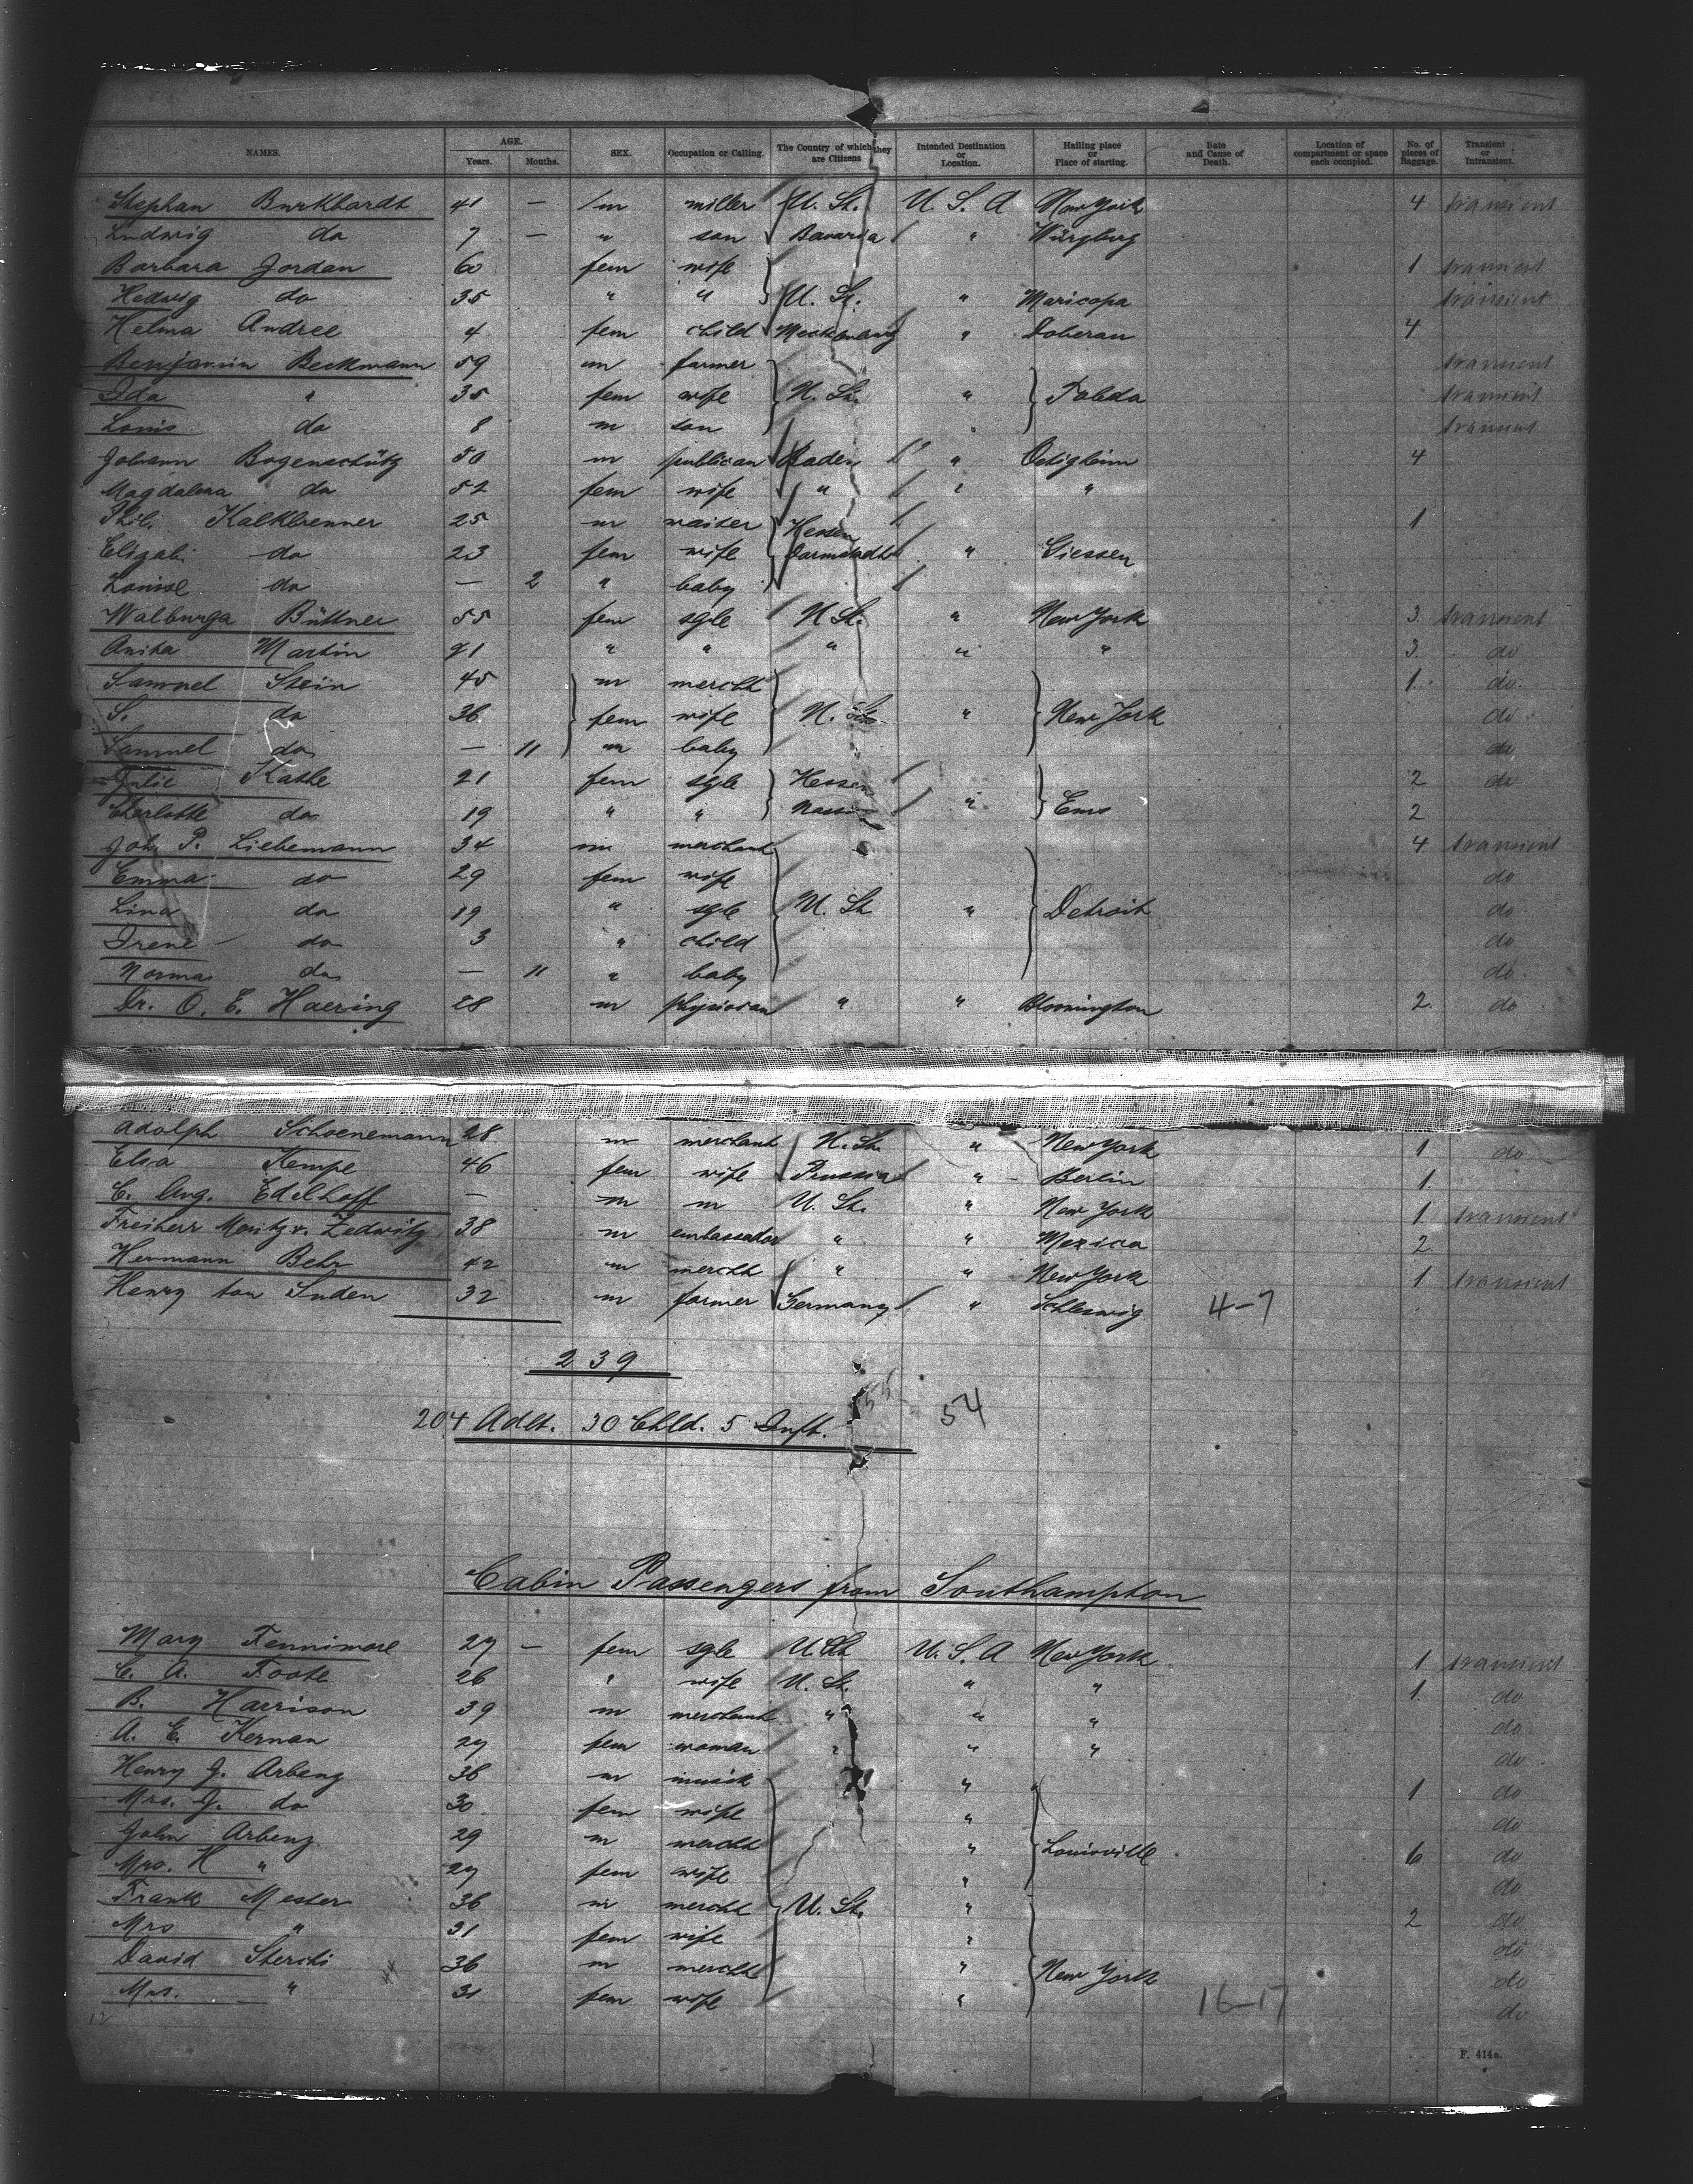 NAMES. AGE. Years. Months. SEX. Occupation or Calling. The Country of which they are Citizens Intended Destination or Location. Hailing place or Place of starting. Date and Cause of Death. Location of compartment or space each occupied. No. of pieces of Baggage. Transient or Intransient.
Stephan Burkhardt 41 — m miller U. St. U. S. A New York 4 transient
Ludwig do 7 — " son Bavaria " Würzburg
Barbara Jordan 60 fem wife 1 transient
Hedwig do 35 " " U. St. " Maricopa transient
Helma Andree 4 fem child Mecklenburg " Doberan 4
Benjamin Beckmann 59 m farmer transient
Ida " 35 fem wife U. St. " Toledo transient
Louis do 8 m son transient
Johann Bogenschütz 50 m publican Baden " Oetigheim 4
Magdalena do 52 fem wife " " "
Phil. Kalkbrenner 25 m waiter Hessen 1
Elisab. do 23 fem wife Darmstadt " Giessen
Louise do — 2 " baby
Walburga Büttner 55 fem sgle U St. " New York 3 transient
Anita Martin 21 " " " " " 3 do
Samuel Stein 45 m mercht 1 do
S. do 36 fem wife U. St. " New York do
Samuel do — 11 m baby do
Julie Kathe 21 fem sgle Hessen 2 do
Charlotte do 19 " " Nassau " Ems 2
Joh. P. Liebemann 34 m merchant 4 transient
Emma do 29 fem wife do
Lina do 19 " sgle U. St " Detroit do
Irene do 3 " child do
Norma do — 11 " baby do
Dr. O. E. Haering 28 m physician " " Bloomington 2 do
Adolph Schoenemann 28 m merchant U. St. " New York 1 do
Elsa Kempe 46 fem wife Prussia " Berlin 1
C. Aug. Edelhoff — m m U. St. " New York 1 transient
Freiherr Moritz v. Zedwitz 38 m embassador " " Mexico 2
Hermann Behr 42 m mercht " " New York 1 transient
Henry ton Suden 32 m farmer Germany " Schleswig 4-7
239
204 Adlt. 30 Chld. 5 Inft. 54
Cabin Passengers from Southampton
Mary Fennimore 27 — fem sgle U St U. S. A New York 1 transient
C. A. Foote 26 " wife U. St. " " 1 do
B. Harrison 39 m merchant " " " do
A. E. Kernan 27 fem woman " " " do
Henry J. Arbenz 36 m musik " 1 do
Mrs. J. do 30 fem wife " do
John Arbenz 29 m mercht " Louisville 6 do
Mrs. H " 27 fem wife " do
Frank Mester 36 m mercht U. St. " 2 do
Mrs " 31 fem wife " do
David Sterchi 36 m mercht " New York do
Mrs. " 31 fem wife " 16-17 do
12
F. 414a.